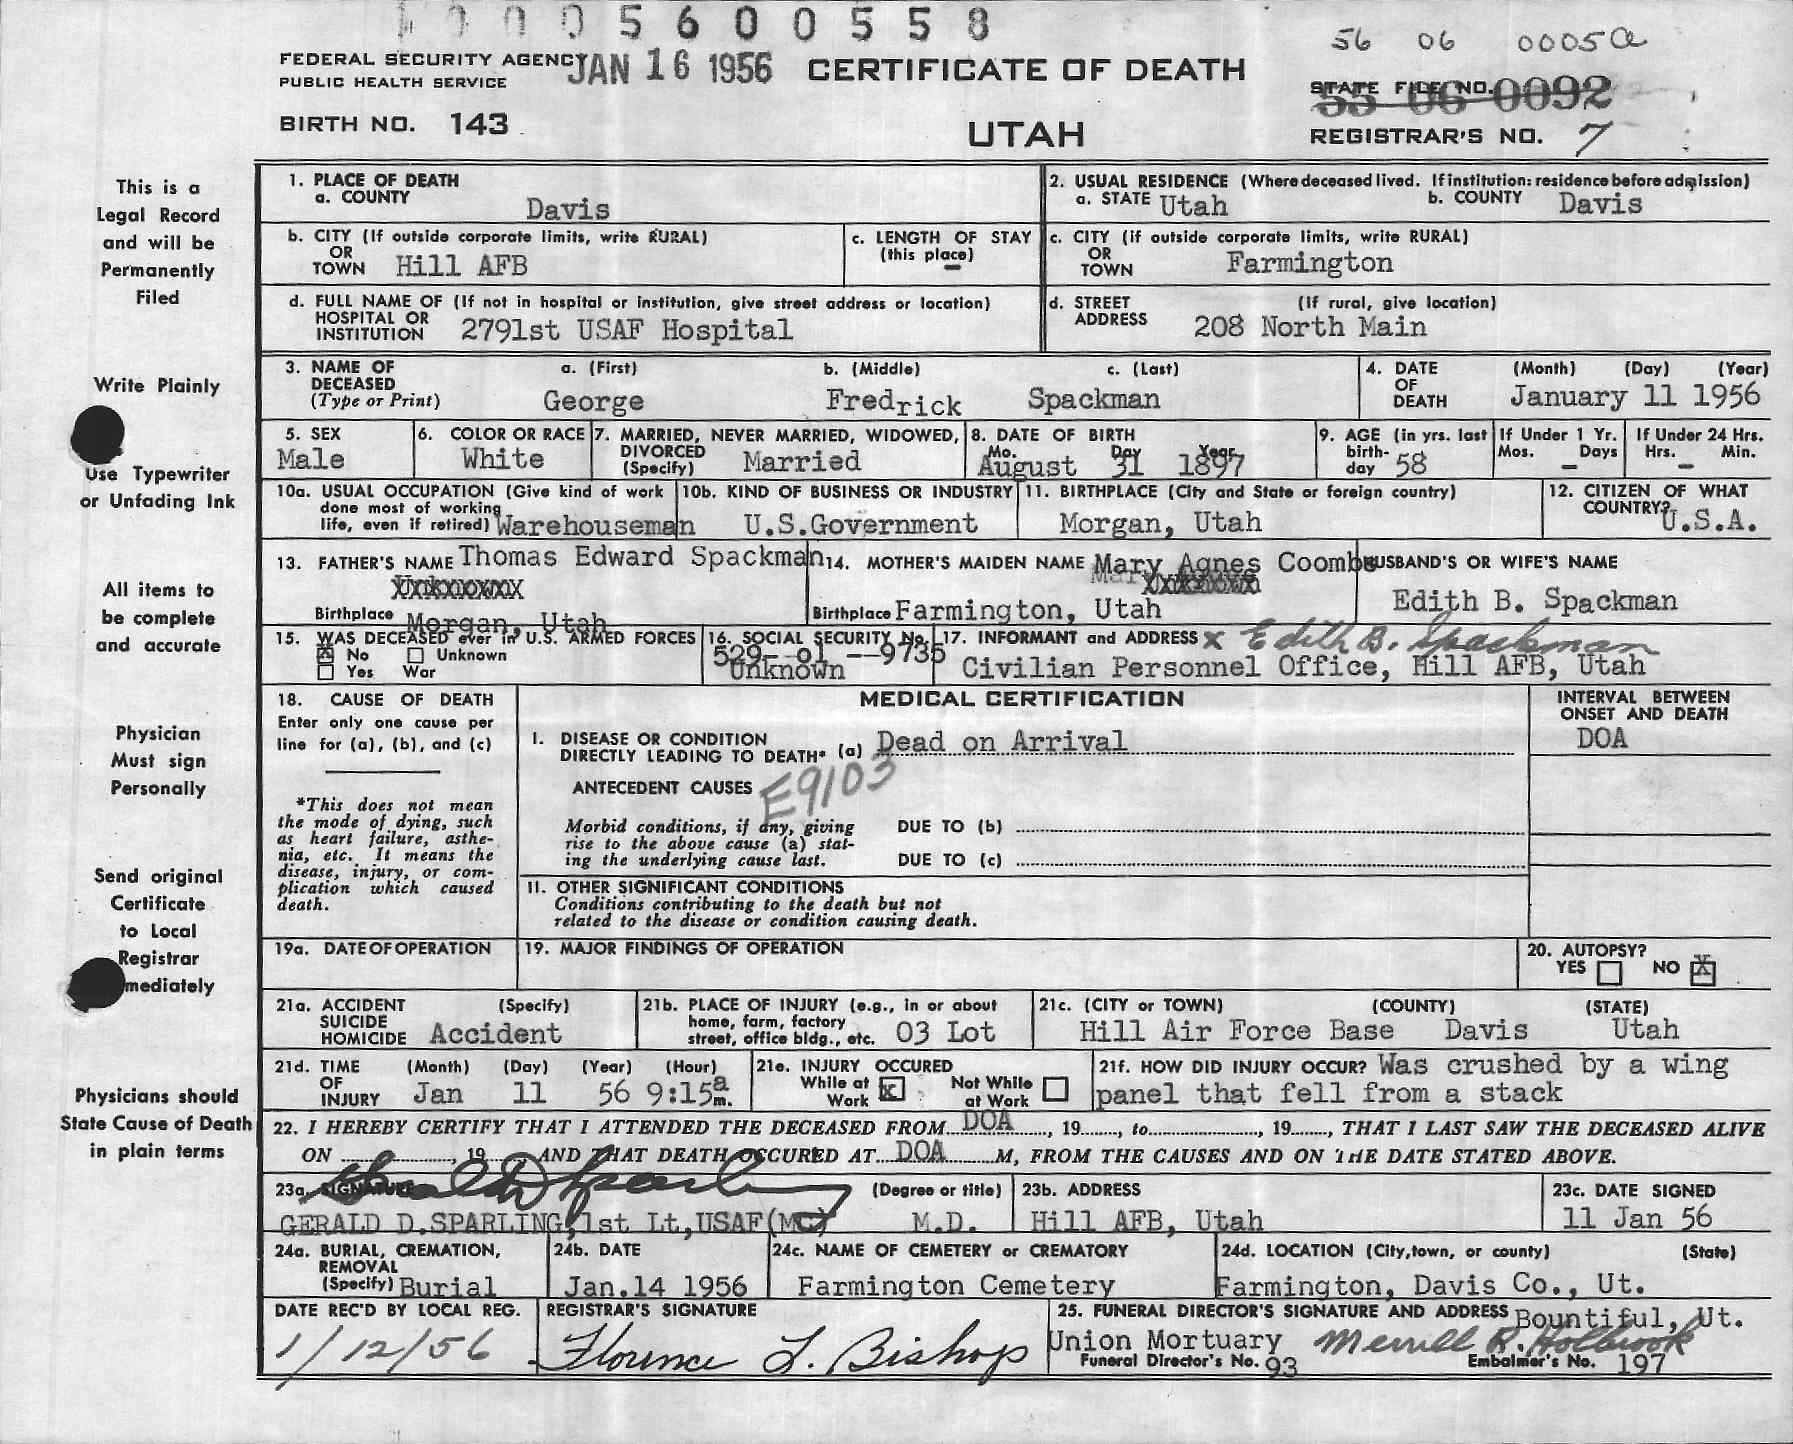 0005600558
56 06 0005a
FEDERAL SECURITY AGENCY
PUBLIC HEALTH SERVICE
JAN 16 1956
CERTIFICATE OF DEATH
STATE FILE NO. 55 06 0092
BIRTH NO. 143
UTAH
REGISTRAR'S NO. 7
This is a
Legal Record
and will be
Permanently
Filed
Write Plainly
Use Typewriter
or Unfading Ink
All items to
be complete
and accurate
Physician
Must sign
Personally
Send original
Certificate
to Local
Registrar
mediately
Physicians should
State Cause of Death
in plain terms
1. PLACE OF DEATH
a. COUNTY Davis
2. USUAL RESIDENCE (Where deceased lived. If institution: residence before admission)
a. STATE Utah b. COUNTY Davis
b. CITY (If outside corporate limits, write RURAL)
OR
TOWN Hill AFB
c. LENGTH OF STAY
(this place)
–
c. CITY (if outside corporate limits, write RURAL)
OR
TOWN Farmington
d. FULL NAME OF (If not in hospital or institution, give street address or location)
HOSPITAL OR
INSTITUTION 2791st USAF Hospital
d. STREET (If rural, give location)
ADDRESS 208 North Main
3. NAME OF DECEASED (Type or Print)
a. (First) b. (Middle) c. (Last)
George Fredrick Spackman
4. DATE OF DEATH (Month) (Day) (Year)
January 11 1956
5. SEX
Male
6. COLOR OR RACE
White
7. MARRIED, NEVER MARRIED, WIDOWED,
DIVORCED
(Specify) Married
8. DATE OF BIRTH
Mo. Day Year
August 31 1897
9. AGE (in yrs. last
birth-
day 58
If Under 1 Yr.
Mos. – Days
If Under 24 Hrs.
Hrs. – Min.
10a. USUAL OCCUPATION (Give kind of work
done most of working
life, even if retired) Warehouseman
10b. KIND OF BUSINESS OR INDUSTRY
U.S.Government
11. BIRTHPLACE (City and State or foreign country)
Morgan, Utah
12. CITIZEN OF WHAT
COUNTRY?
U.S.A.
13. FATHER'S NAME Thomas Edward Spackman
Unknown
Birthplace Morgan, Utah
14. MOTHER'S MAIDEN NAME Mary Agnes Coombs
Unknown
Birthplace Farmington, Utah
HUSBAND'S OR WIFE'S NAME
Edith B. Spackman
15. WAS DECEASED ever in U.S. ARMED FORCES
X No Unknown
Yes War
16. SOCIAL SECURITY No.
529--01--9735
Unknown
17. INFORMANT and ADDRESS x Edith B. Spackman
Civilian Personnel Office, Hill AFB, Utah
18. CAUSE OF DEATH
Enter only one cause per
line for (a), (b), and (c)
*This does not mean
the mode of dying, such
as heart failure, asthe-
nia, etc. It means the
disease, injury, or com-
plication which caused
death.
MEDICAL CERTIFICATION
INTERVAL BETWEEN
ONSET AND DEATH
DOA
I. DISEASE OR CONDITION
DIRECTLY LEADING TO DEATH* (a) Dead on Arrival
ANTECEDENT CAUSES E9103
Morbid conditions, if any, giving
rise to the above cause (a) stat-
ing the underlying cause last.
DUE TO (b)
DUE TO (c)
II. OTHER SIGNIFICANT CONDITIONS
Conditions contributing to the death but not
related to the disease or condition causing death.
19a. DATE OF OPERATION
19. MAJOR FINDINGS OF OPERATION
20. AUTOPSY?
YES NO X
21a. ACCIDENT (Specify)
SUICIDE
HOMICIDE Accident
21b. PLACE OF INJURY (e.g., in or about
home, farm, factory
street, office bldg., etc. 03 Lot
21c. (CITY or TOWN) (COUNTY) (STATE)
Hill Air Force Base Davis Utah
21d. TIME OF INJURY (Month) (Day) (Year) (Hour)
Jan 11 56 9:15 a m.
21e. INJURY OCCURED
While at Work X Not While at Work
21f. HOW DID INJURY OCCUR? Was crushed by a wing
panel that fell from a stack
22. I HEREBY CERTIFY THAT I ATTENDED THE DECEASED FROM DOA, 19....., to..............., 19......, THAT I LAST SAW THE DECEASED ALIVE
ON ..............., 19 AND THAT DEATH OCCURED AT DOA M, FROM THE CAUSES AND ON THE DATE STATED ABOVE.
23a. SIGNATURE Gerald D Sparling (Degree or title)
GERALD D.SPARLING,1st Lt,USAF(MC) M.D.
23b. ADDRESS
Hill AFB, Utah
23c. DATE SIGNED
11 Jan 56
24a. BURIAL, CREMATION,
REMOVAL
(Specify) Burial
24b. DATE
Jan.14 1956
24c. NAME OF CEMETERY or CREMATORY
Farmington Cemetery
24d. LOCATION (City,town, or county) (State)
Farmington, Davis Co., Ut.
DATE REC'D BY LOCAL REG.
1/12/56
REGISTRAR'S SIGNATURE
Florence L. Bishop
25. FUNERAL DIRECTOR'S SIGNATURE AND ADDRESS Bountiful, Ut.
Union Mortuary Merrill R. Holbrook
Funeral Director's No. 93 Embalmer's No. 197